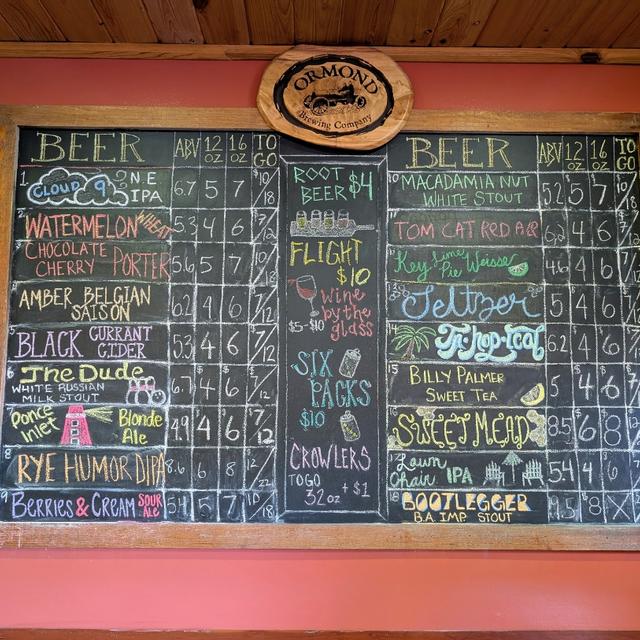 ORMOND
Brewing Company
BEER ABV 12 OZ 16 OZ TO GO
1 CLOUD 9 N.E IPA 6.7 5 7 $10/18
2 WATERMELON WHEAT 5.3 4 6 7/12
3 CHOCOLATE CHERRY PORTER 5.6 5 7 10/18
AMBER BELGIAN SAISON 6.2 4 6 7/12
5 BLACK CURRANT CIDER 5.3 4 6 7/12
6 The Dude WHITE RUSSIAN MILK STOUT 6.7 4 6 $7/12
7 Ponce Inlet Blonde Ale 4.9 4 6 $7/12
8 RYE HUMOR DIPA 8.6 6 8 12/22
9 BERRIES & CREAM SOUR ALE 5 7 10/18
ROOT BEER $4
FLIGHT $10
Wine by the glass
$5-$10
SIX PACKS
$10
CROWLERS
TO GO
32oz + $1
BEER ABV 12 OZ 16 OZ TO GO
10 MACADAMIA NUT WHITE STOUT 5.2 5 7
11 TOM CAT RED ALE 6.2 4 6
Key Lime Pie Weisse 4.6 4 6
Seltzer 5 4 6
14 Tr-hop-ical 6.2 4 6
15 BILLY PALMER SWEET TEA 5 4 6
SWEET MEAD 8.5 6 8
17 Lawn Chair IPA 5.4 4 6
18 BOOTLEGGER B.A. IMP. STOUT 8 X